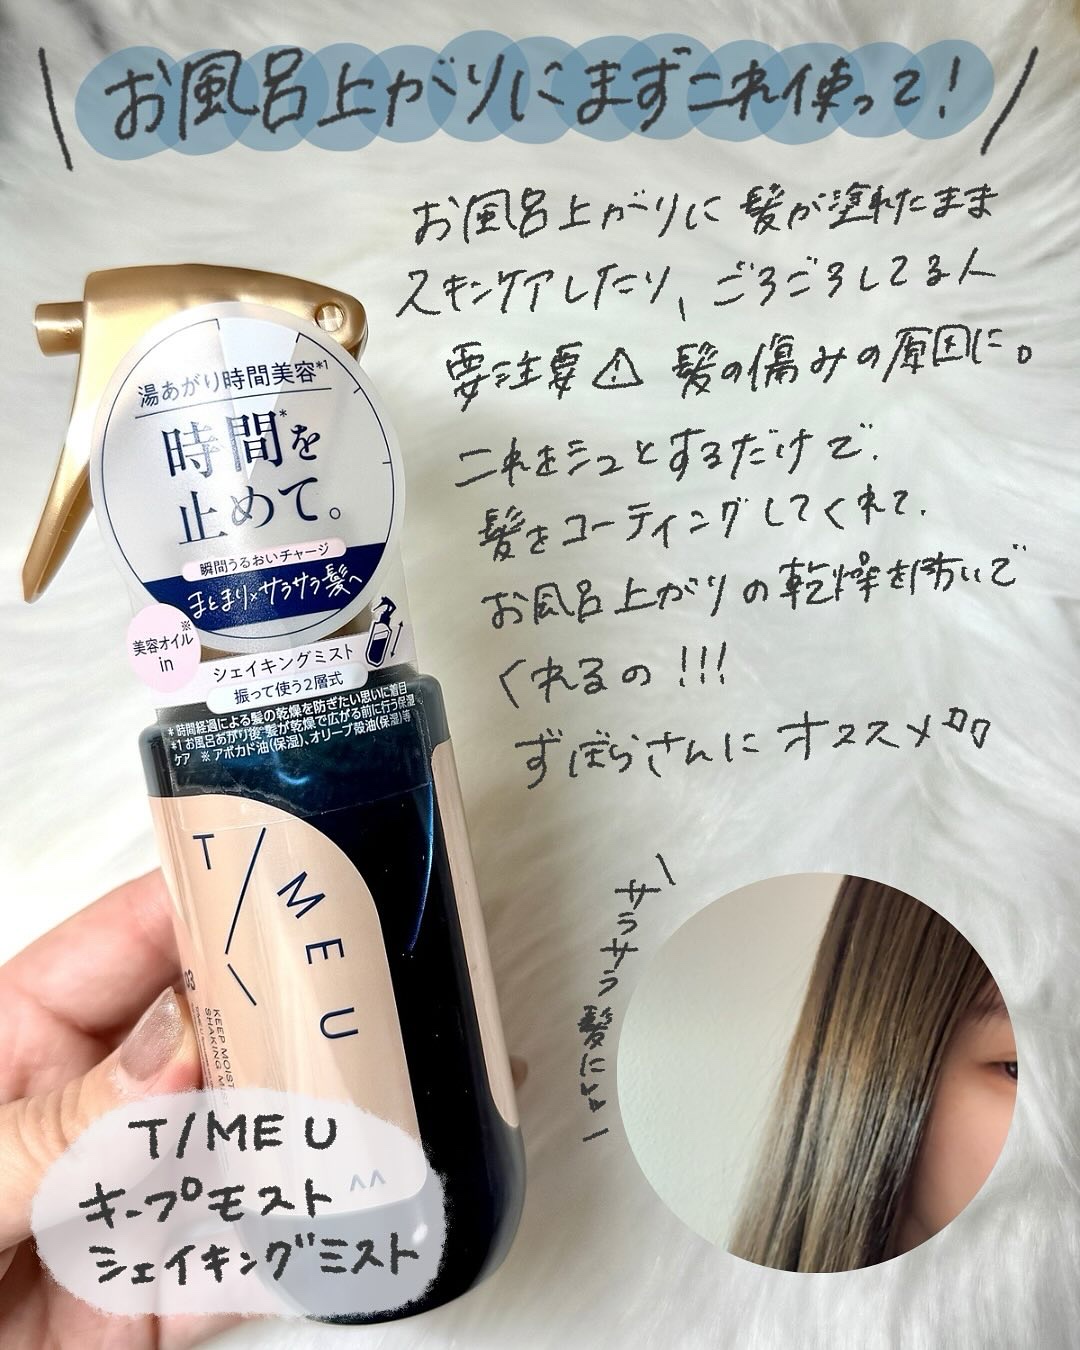 お風呂上がりにまずこれ使って!
お風呂上がりに髪が塗れたまま
スキンケアしたり、ごろごろしてる人
要注意⚠ 髪の傷みの原因に。
これをシュとするだけで、
髪をコーティングしてくれて、
お風呂上がりの乾燥を防いで
くれるの!!!
ずぼらさんにオススメ
湯あがり時間美容*1
時間*を
止めて。
瞬間うるおいチャージ
まとまり×サラサラ髪へ
美容オイル※
in
シェイキングミスト
振って使う2層式
*時間経過による髪の乾燥を防ぎたい思いに着目
*1お風呂あがり後 髪が乾燥で広がる前に行う保湿
ケア ※ アボカド油(保湿)、オリーブ殻油(保湿)等
T/MEU
03
KEEP MOIST
SHAKING MIST
サラサラ髪に
T/MEU
キープモスト
シェイキングミスト